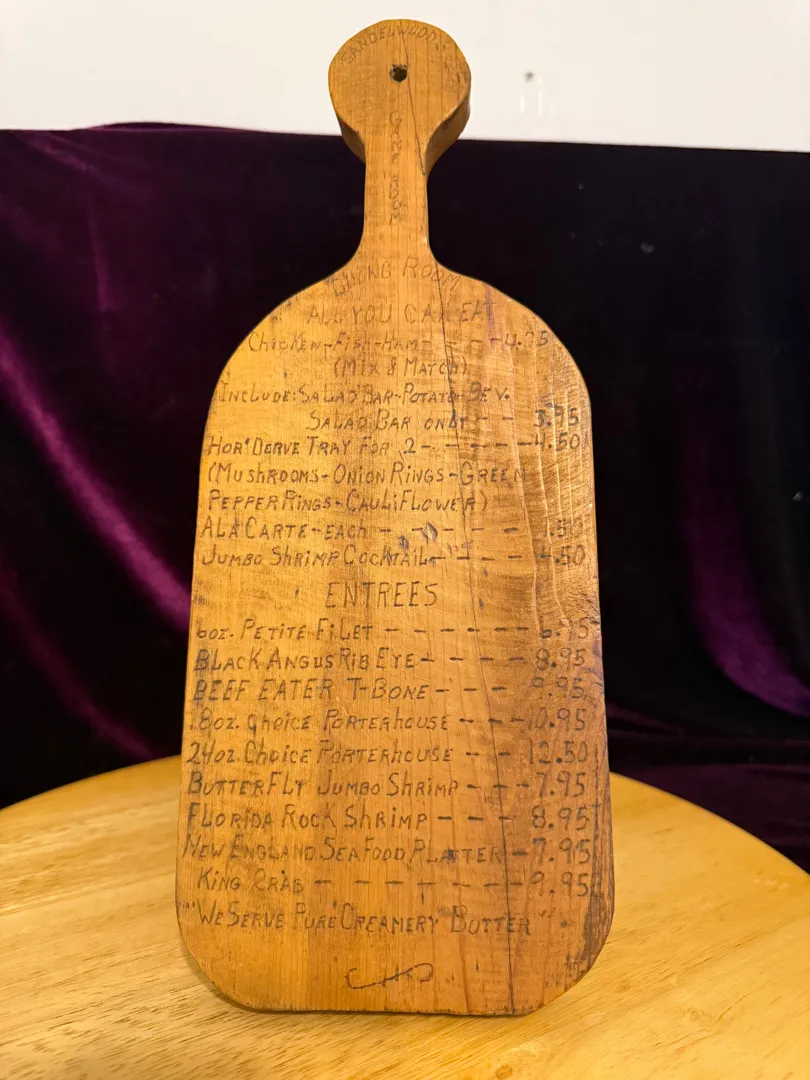 SANDELWOOD
DINING ROOM
ALL YOU CAN EAT
CHICKEN-FISH-HAM- - - -4.75
(MIX & MATCH)
INCLUDE:SALAD BAR-POTATO-BEV.
SALAD BAR ONLY - - 3.95
HOR'DERVE TRAY FOR 2- - - - - -4.50
(MUSHROOMS-ONION RINGS-GREEN
PEPPER RINGS-CAULIFLOWER)
ALA CARTE-EACH - - - - - -
JUMBO SHRIMP COCKTAIL- - - - - 4.50
ENTREES
6OZ. PETITE FILET - - - - - - 6.95
BLACK ANGUS RIB EYE- - - - 8.95
BEEF EATER T-BONE - - - 9.95
18OZ. CHOICE PORTERHOUSE - - -10.95
24OZ. CHOICE PORTERHOUSE - - 12.50
BUTTERFLY JUMBO SHRIMP - - -7.95
FLORIDA ROCK SHRIMP - - - 8.95
NEW ENGLAND SEAFOOD PLATTER -7.95
KING CRAB - - - - - - -9.95
"WE SERVE PURE CREAMERY BUTTER"